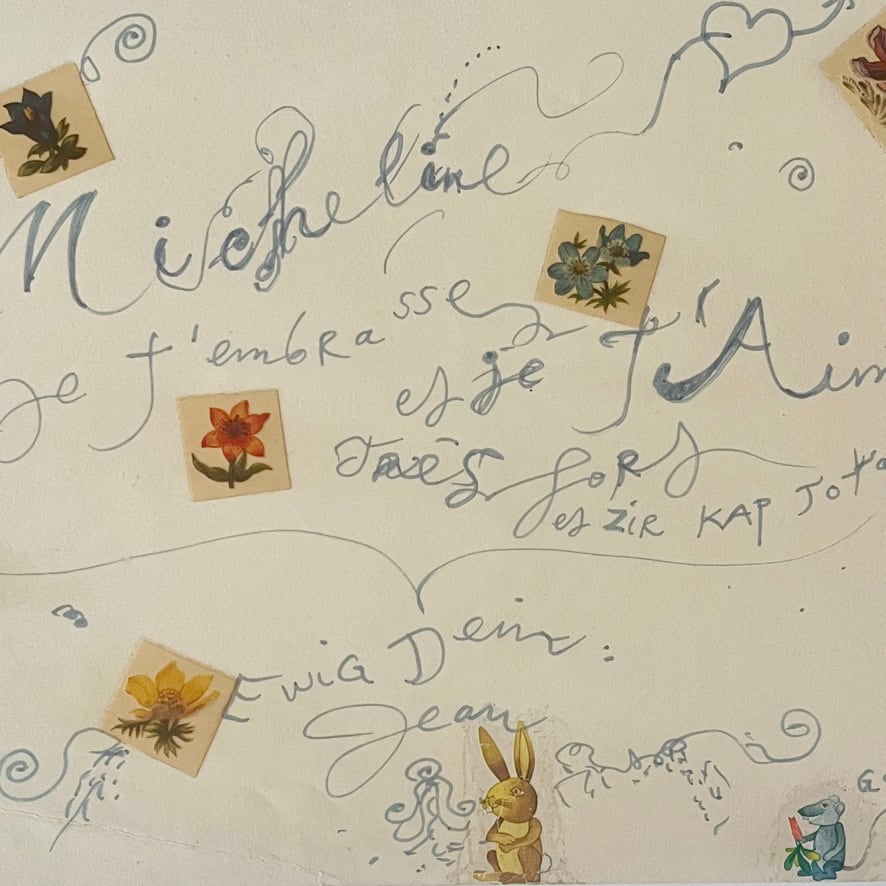 Micheline
Je t'embrasse
et je t'Aim
très fort
et ZIR KAP
EwiG Dein :
Jean